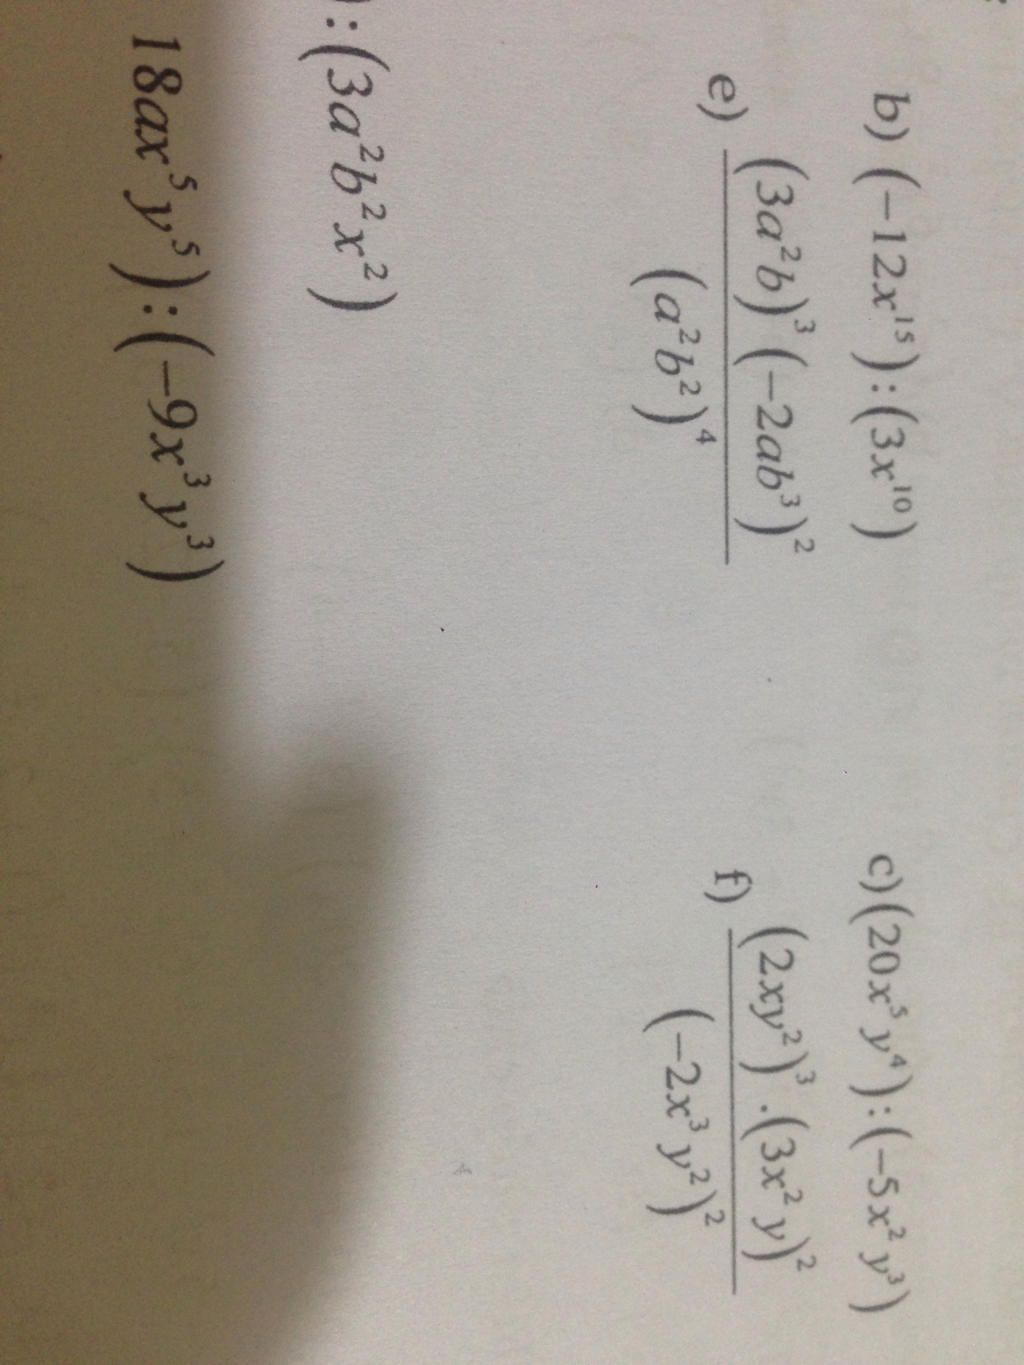 b) (−12x¹⁵):(3x¹⁰) c)(20x⁵y⁴):(−5x²y³)
e) (3a²b)³(−2ab³)² f) (2xy²)³.(3x²y)²
(a²b²)⁴ (−2x³y²)²
):(3a²b²x²)
18ax⁵y⁵):(−9x³y³)